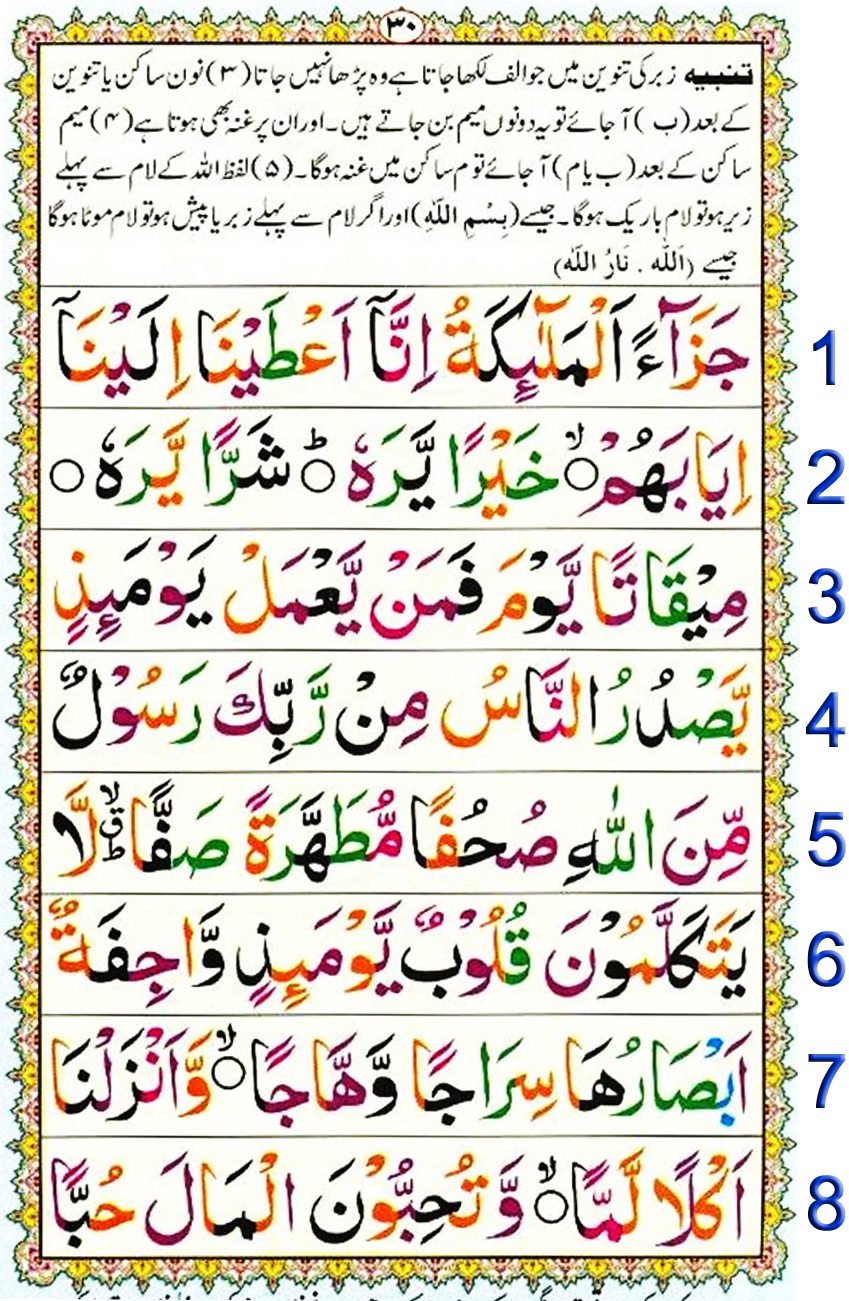 ٣٠
تنبیہ زبر کی تنوین میں جو الف لکھا جاتا ہے وہ پڑھا نہیں جاتا (۳) نون ساکن یا تنوین
کے بعد (ب) آ جائے تو یہ دونوں میم بن جاتے ہیں۔ اور ان پر غنہ بھی ہوتا ہے (۴) میم
ساکن کے بعد (ب یا م) آ جائے تو م ساکن میں غنہ ہوگا۔ (۵) لفظ اللہ کے لام سے پہلے
زیر ہو تو لام باریک ہوگا۔ جیسے (بِسْمِ اللّٰهِ) اور اگر لام سے پہلے زبر یا پیش ہو تو لام موٹا ہوگا
جیسے (اَللّٰه ۔ نَارُ اللّٰه)
جَزَآءً اَلْمَلٰٓئِكَةُ اِنَّآ اَعْطَيْنَا اِلَيْنَآ 1
اِيَابَهُمْ ۙ○ خَيْرًا يَّرَهٗ ؕ○ شَرًّا يَّرَهٗ ○ 2
مِيْقَاتًا يَّوْمَ فَمَنْ يَّعْمَلْ يَوْمَىِٕذٍ 3
يَّصْدُرُ النَّاسُ مِنْ رَّبِّكَ رَسُوْلٌ 4
مِّنَ اللّٰهِ صُحُفًا مُّطَهَّرَةً صَفًّا ۙۗؕ لَّا 5
يَتَكَلَّمُوْنَ قُلُوْبٌ يَّوْمَىِٕذٍ وَّاجِفَةٌ 6
اَبْصَارُهَا سِرَاجًا وَّهَّاجًا ۙ○ وَّاَنْزَلْنَا 7
اَكْلًا لَّمًّا ۙ○ وَّ تُحِبُّوْنَ الْمَالَ حُبًّا 8